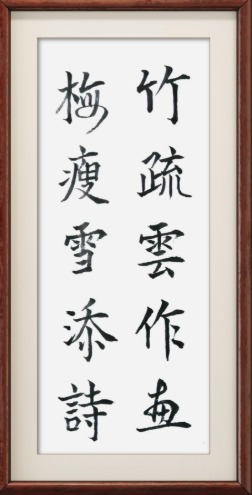 竹疏雲作画
梅瘦雪添詩